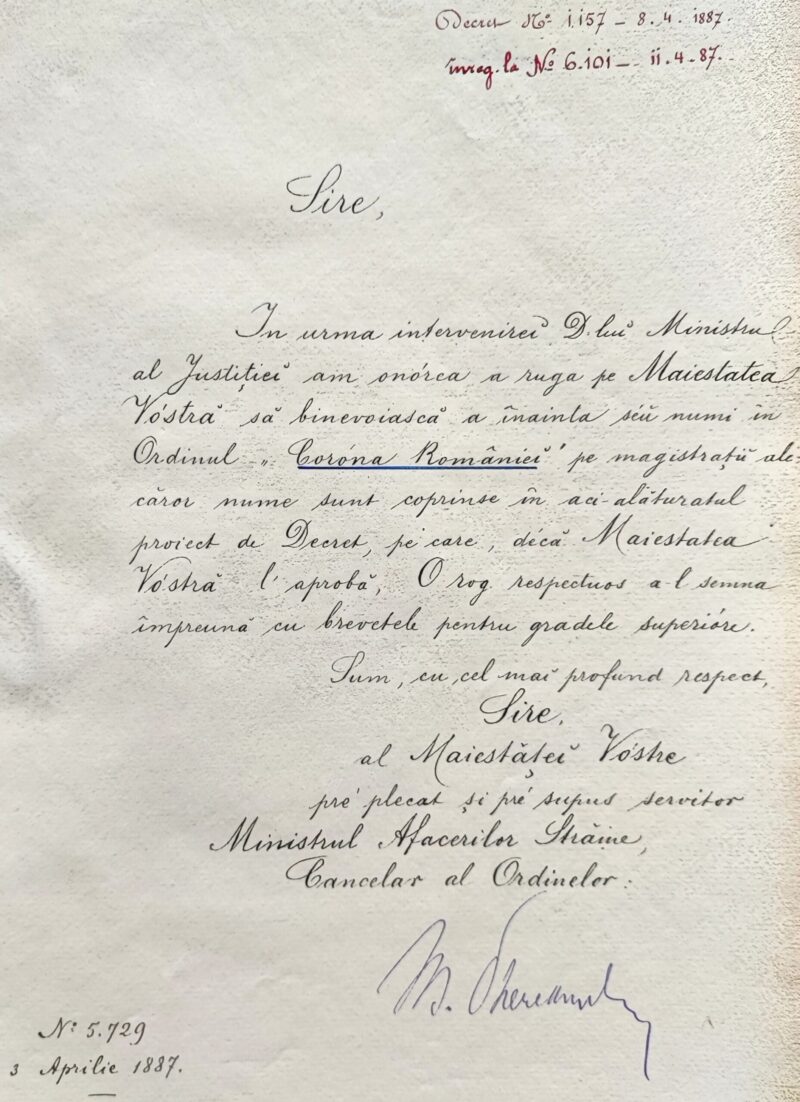 Decret Nº 1.157 – 8.4.1887.
înreg. la Nº 6.101 – 11.4.87.
Sire,
In urma intervenirei D-lui Ministru
al Justiției am onórea a ruga pe Maiestatea
Vóstră să binevoiască a înainta séŭ numi în
Ordinul „Coróna Românieĭ" pe magistrațiĭ ale
căror nume sunt coprinse în aci-alăturatul
proiect de Decret, pe care, décă Maiestatea
Vóstră l' aprobă, O rog respectuos a-l semna
împreună cu brevetele pentru gradele superióre.
Sum, cu cel mai profund respect,
Sire,
al Maiestăței Vóstre
pré plecat și pré supus servitor
Ministrul Afacerilor Străine,
Cancelar al Ordinelor:
M. Pherekyde
Nº 5.729
3 Aprilie 1887.